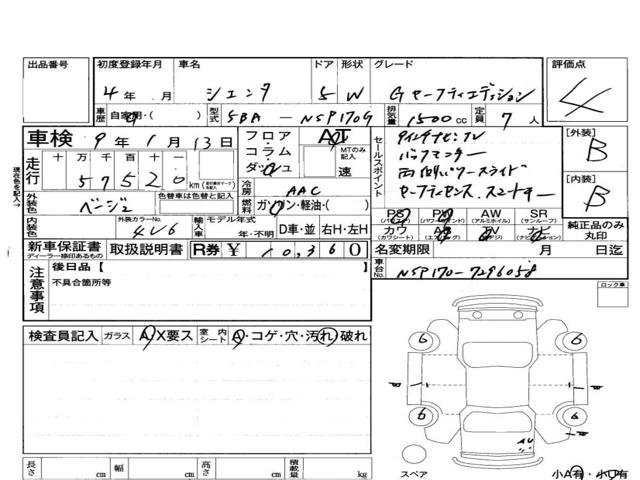 出品番号
初度登録年月 車名 ドア 形状 グレード 評価点
4年 月 シエンタ 5 W G セーフティエディション 4
車歴 自家用・( ) 型式 5BA-NSP170G 排気量 1500cc 定員 7人
車検 9年1月13日 フロア・コラム・ダッシュ AT MTのみ記入 速
走行 十万千百十一 57520 km
現在色を記入→
冷房 AAC
セールスポイント
バックモニター
両側パワースライド
セーフティセンス、スマートキー
[外装] B
[内装] B
外装色 ベージュ 色替車は色替と記入 燃料 ガソリン・軽油・( )
内装色 外装カラーNo. 4V6 輸入車 モデル年式 年・不明 D車・並 右H・左H
PS (パワーステアリング) PW (パワーウィンドウ) AW (アルミホイル) SR (サンルーフ)
カワ (カワシート) AB (エアバッグ) TV ナビ (ナビゲーション)
純正品のみ丸印
新車保証書 ディーラー捺印あるもの 取扱説明書 R券 ¥10,360 名変期限 月 日迄
注意事項 後日品【
不具合箇所等
車台No. NSP170-7296058
ロック車
検査員記入 ガラス A・X要ス 室内シート A・コゲ・穴・汚れ・破れ
6 6
6 6
AU
スペア
小A有・小U有
長さ cm 幅 cm 高さ cm 積載量 kg